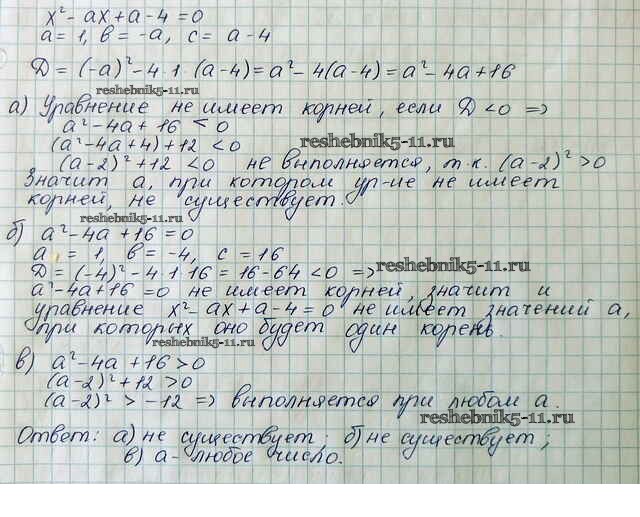 x² - ax + a - 4 = 0
a = 1, в = -a, c = a - 4
D = (-a)² - 4·1·(a-4) = a² - 4(a-4) = a² - 4a + 16
reshebnik5-11.ru
а) Уравнение не имеет корней, если D < 0 =>
a² - 4a + 16 < 0
reshebnik5-11.ru
(a² - 4a + 4) + 12 < 0
(a-2)² + 12 < 0 не выполняется, т.к. (a-2)² > 0
Значит a, при котором ур-ие не имеет
корней, не существует.
reshebnik5-11.ru
б) a² - 4a + 16 = 0
a = 1, в = -4, c = 16
reshebnik5-11.ru
D = (-4)² - 4·1·16 = 16 - 64 < 0 =>
a² - 4a + 16 = 0 не имеет корней, значит и
уравнение x² - ax + a - 4 = 0 не имеет значений a,
при которых оно будет один корень.
reshebnik5-11.ru
в) a² - 4a + 16 > 0
(a-2)² + 12 > 0
(a-2)² > -12 => выполняется при любом a.
reshebnik5-11.ru
Ответ: а) не существует; б) не существует;
в) a - любое число.